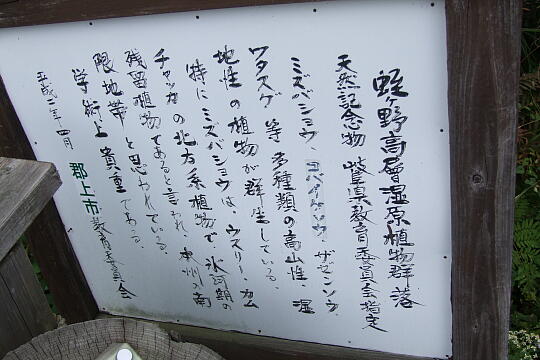 蛭ヶ野高層湿原植物群落
天然記念物 岐阜県教育委員会指定
ミズバショウ、コバイケソウ、ザゼンソウ、
ワタスゲ等 多種類の高山性、湿
地性の植物が群生している。
特にミズバショウは、ウスリー、カム
チャッカの北方系植物で氷河期の
残留植物であると言われ、本州の南
限地帯と思われている。
学術上貴重である。
平成二年四月 郡上市教育委員会